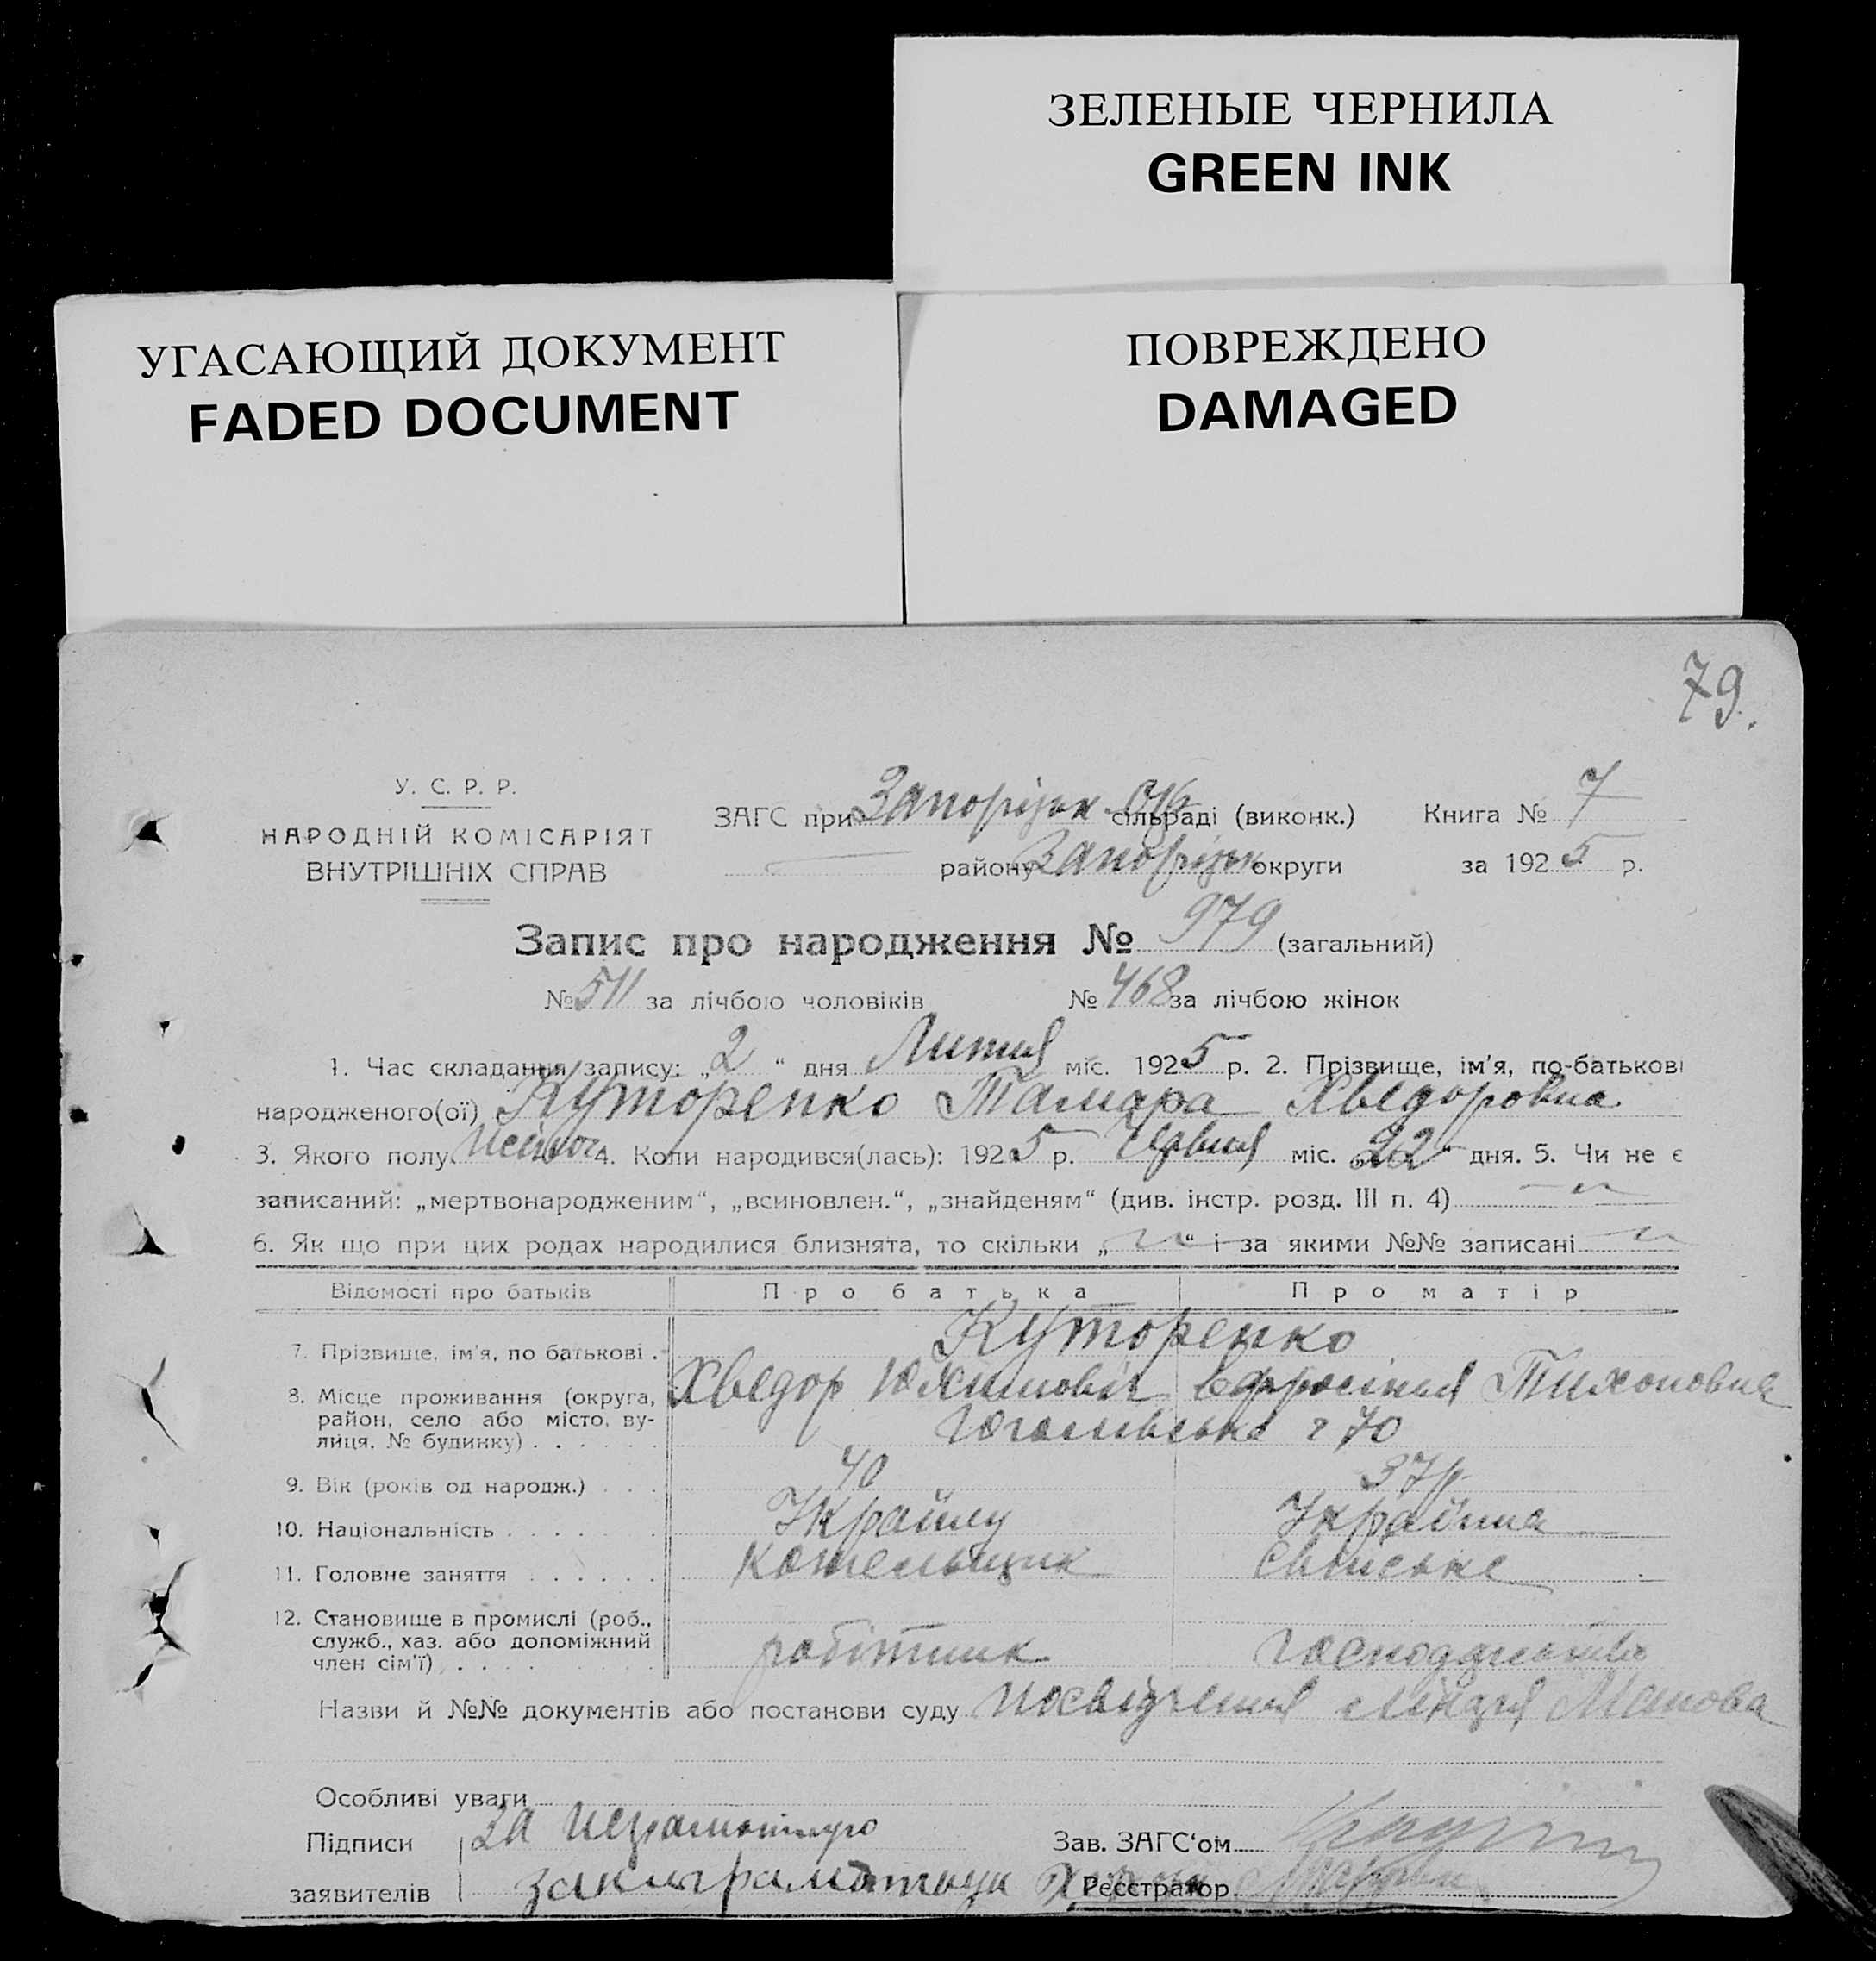 ЗЕЛЕНЫЕ ЧЕРНИЛА
GREEN INK
УГАСАЮЩИЙ ДОКУМЕНТ
FADED DOCUMENT
ПОВРЕЖДЕНО
DAMAGED
79.
У. С. Р. Р.
НАРОДНІЙ КОМІСАРІЯТ
ВНУТРІШНІХ СПРАВ
ЗАГС при Запорізьк сільраді (виконк.) Книга № 7
району Запорізьк округи за 1925 р.
Запис про народження № 979 (загальний)
№ 511 за лічбою чоловіків № 468 за лічбою жінок
1. Час складання запису: „2“ дня Липня міс. 1925 р. 2. Прізвище, ім'я, по-батькові
народженого(ої) Куторенко Тамара Хведоровна
3. Якого полу 4. Коли народився(лась): 1925 р. Червня міс. „22“ дня. 5. Чи не є
записаний: „мертвонародженим“, „всиновлен.“, „знайденям“ (див. інстр. розд. III п. 4)
6. Як що при цих родах народилися близнята, то скільки „ “ і за якими №№ записані
Відомості про батьків Про батька Про матір
Куторенко
7. Прізвище, ім'я, по батькові .
Хведор Юхимовіч Тихоновна
8. Місце проживання (округа,
район, село або місто, ву-
лиця, № будинку) . . . . . . 70
9. Вік (років од народж.) . . . 40 37р
10. Національність . . . . . . Українец Україніка
11. Головне заняття . . . . . . Котельщик
12. Становище в промислі (роб.,
служб., хаз. або допоміжний
член сім'ї) . . . . . . робітник
Назви й №№ документів або постанови суду посвідчення
Особливі уваги
Підписи За неграмотную
Зав. ЗАГС'ом
заявителів
Реєстратор